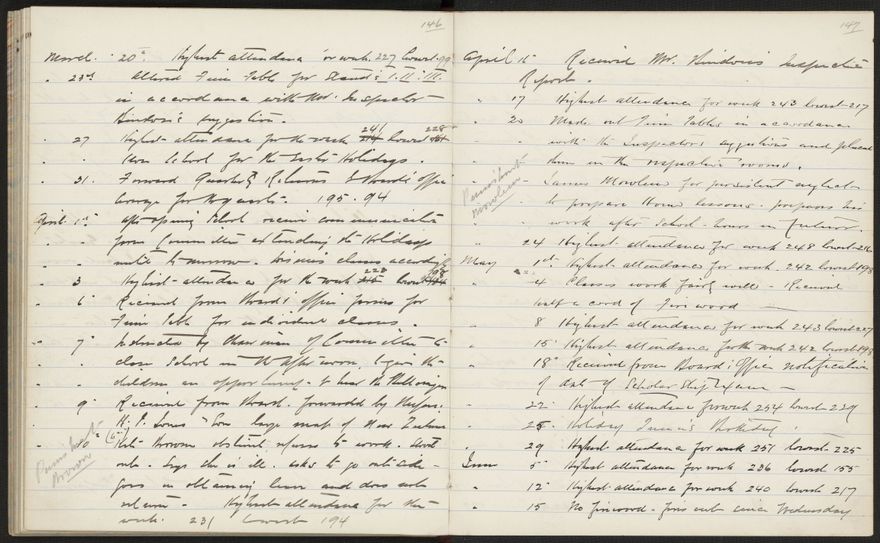 146
March 20th Highest attendance for week 227 lowest 99
" 23rd Altered Time Table for Stand's I. II. III.
in accordance with Mr. Inspector
Hindon's suggestion.
" 27 Highest attendance for the week 241 lowest 228
School for the Easter Holidays.
" 31. Forward Quarterly Returns to Board's Office
average for the quarter - 195.94
April 1st after opening School receive communication
from Committee extending the Holidays
until to-morrow. Dismiss classes accordingly
" 3 Highest attendance for the week 228 lowest 198
" 6 Received from Board's office forms for
Time Table for individual classes.
" 7 Instructed by Chairman of Committee to
close School in the afternoon, to give the
children an opportunity to hear the
" 9 Received from Board. forwarded by Messrs.
Son large map of New Zealand
" 10th Brown obstinate, refuses to work.
Says she is ill. asks to go outside
goes on obtaining leave and does not
return - Highest attendance for the
week. 231 Lowest 194
Punishment
Brown
147
April 15 Received Mr. Hindon's Inspection
Report.
" 17 Highest attendance for week 243 lowest 217
" 20 Made out Time Tables in accordance
with the Inspectors suggestions and placed
them in the respective rooms.
" James Mowlem for persistent neglect
to prepare Home lessons. prepares his
work after School-hours in future.
Punishment
Mowlem
" 24 Highest attendance for week 248 lowest
May 1st. Highest attendance for week. 242 lowest 198
" 4 Classes work fairly well - Received
half a cord of firewood -
" 8 Highest attendance for week 243 lowest 227
" 15 Highest attendance for the week 242 lowest 198
" 18 Received from Board's Office notification
of date of Scholarship Exam -
" 22 Highest attendance for week 254 lowest 239
" 25 Holiday Queen's Birthday.
" 29 Highest attendance for week 251 lowest 225
June 5 Highest attendance for week 236 lowest 155
" 12 Highest attendance for week 240 lowest 217
" 15 No firewood - fires out since Wednesday